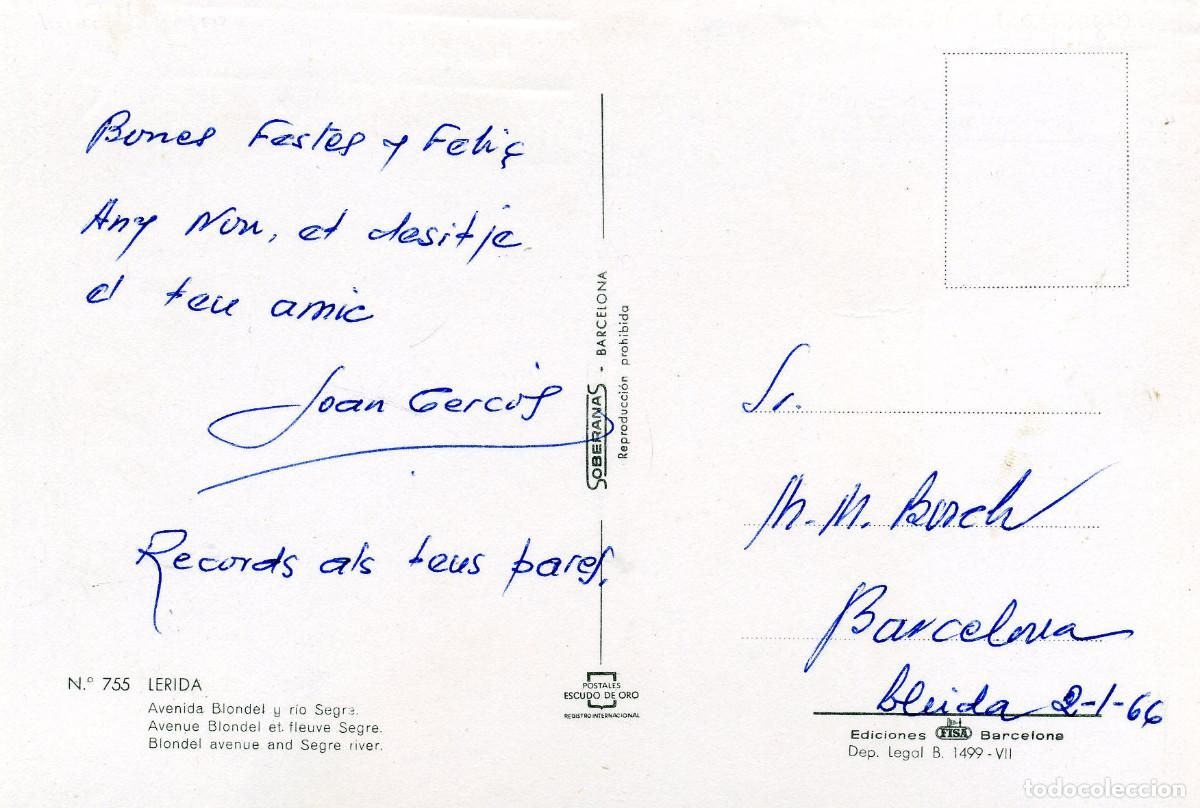 Bones Festes y Feliç
Any Nou, et desitje
el teu amic
Joan
Records als teus pares.
N.º 755 LERIDA
Avenida Blondel y río Segre.
Avenue Blondel et fleuve Segre.
Blondel avenue and Segre river.
SOBERANAS - BARCELONA
Reproducción prohibida
POSTALES
ESCUDO DE ORO
REGISTRO INTERNACIONAL
Sr.
M. M. Bosch
Barcelona
Lleida 2-1-66
Ediciones FISA Barcelona
Dep. Legal B. 1499-VII
todocoleccion